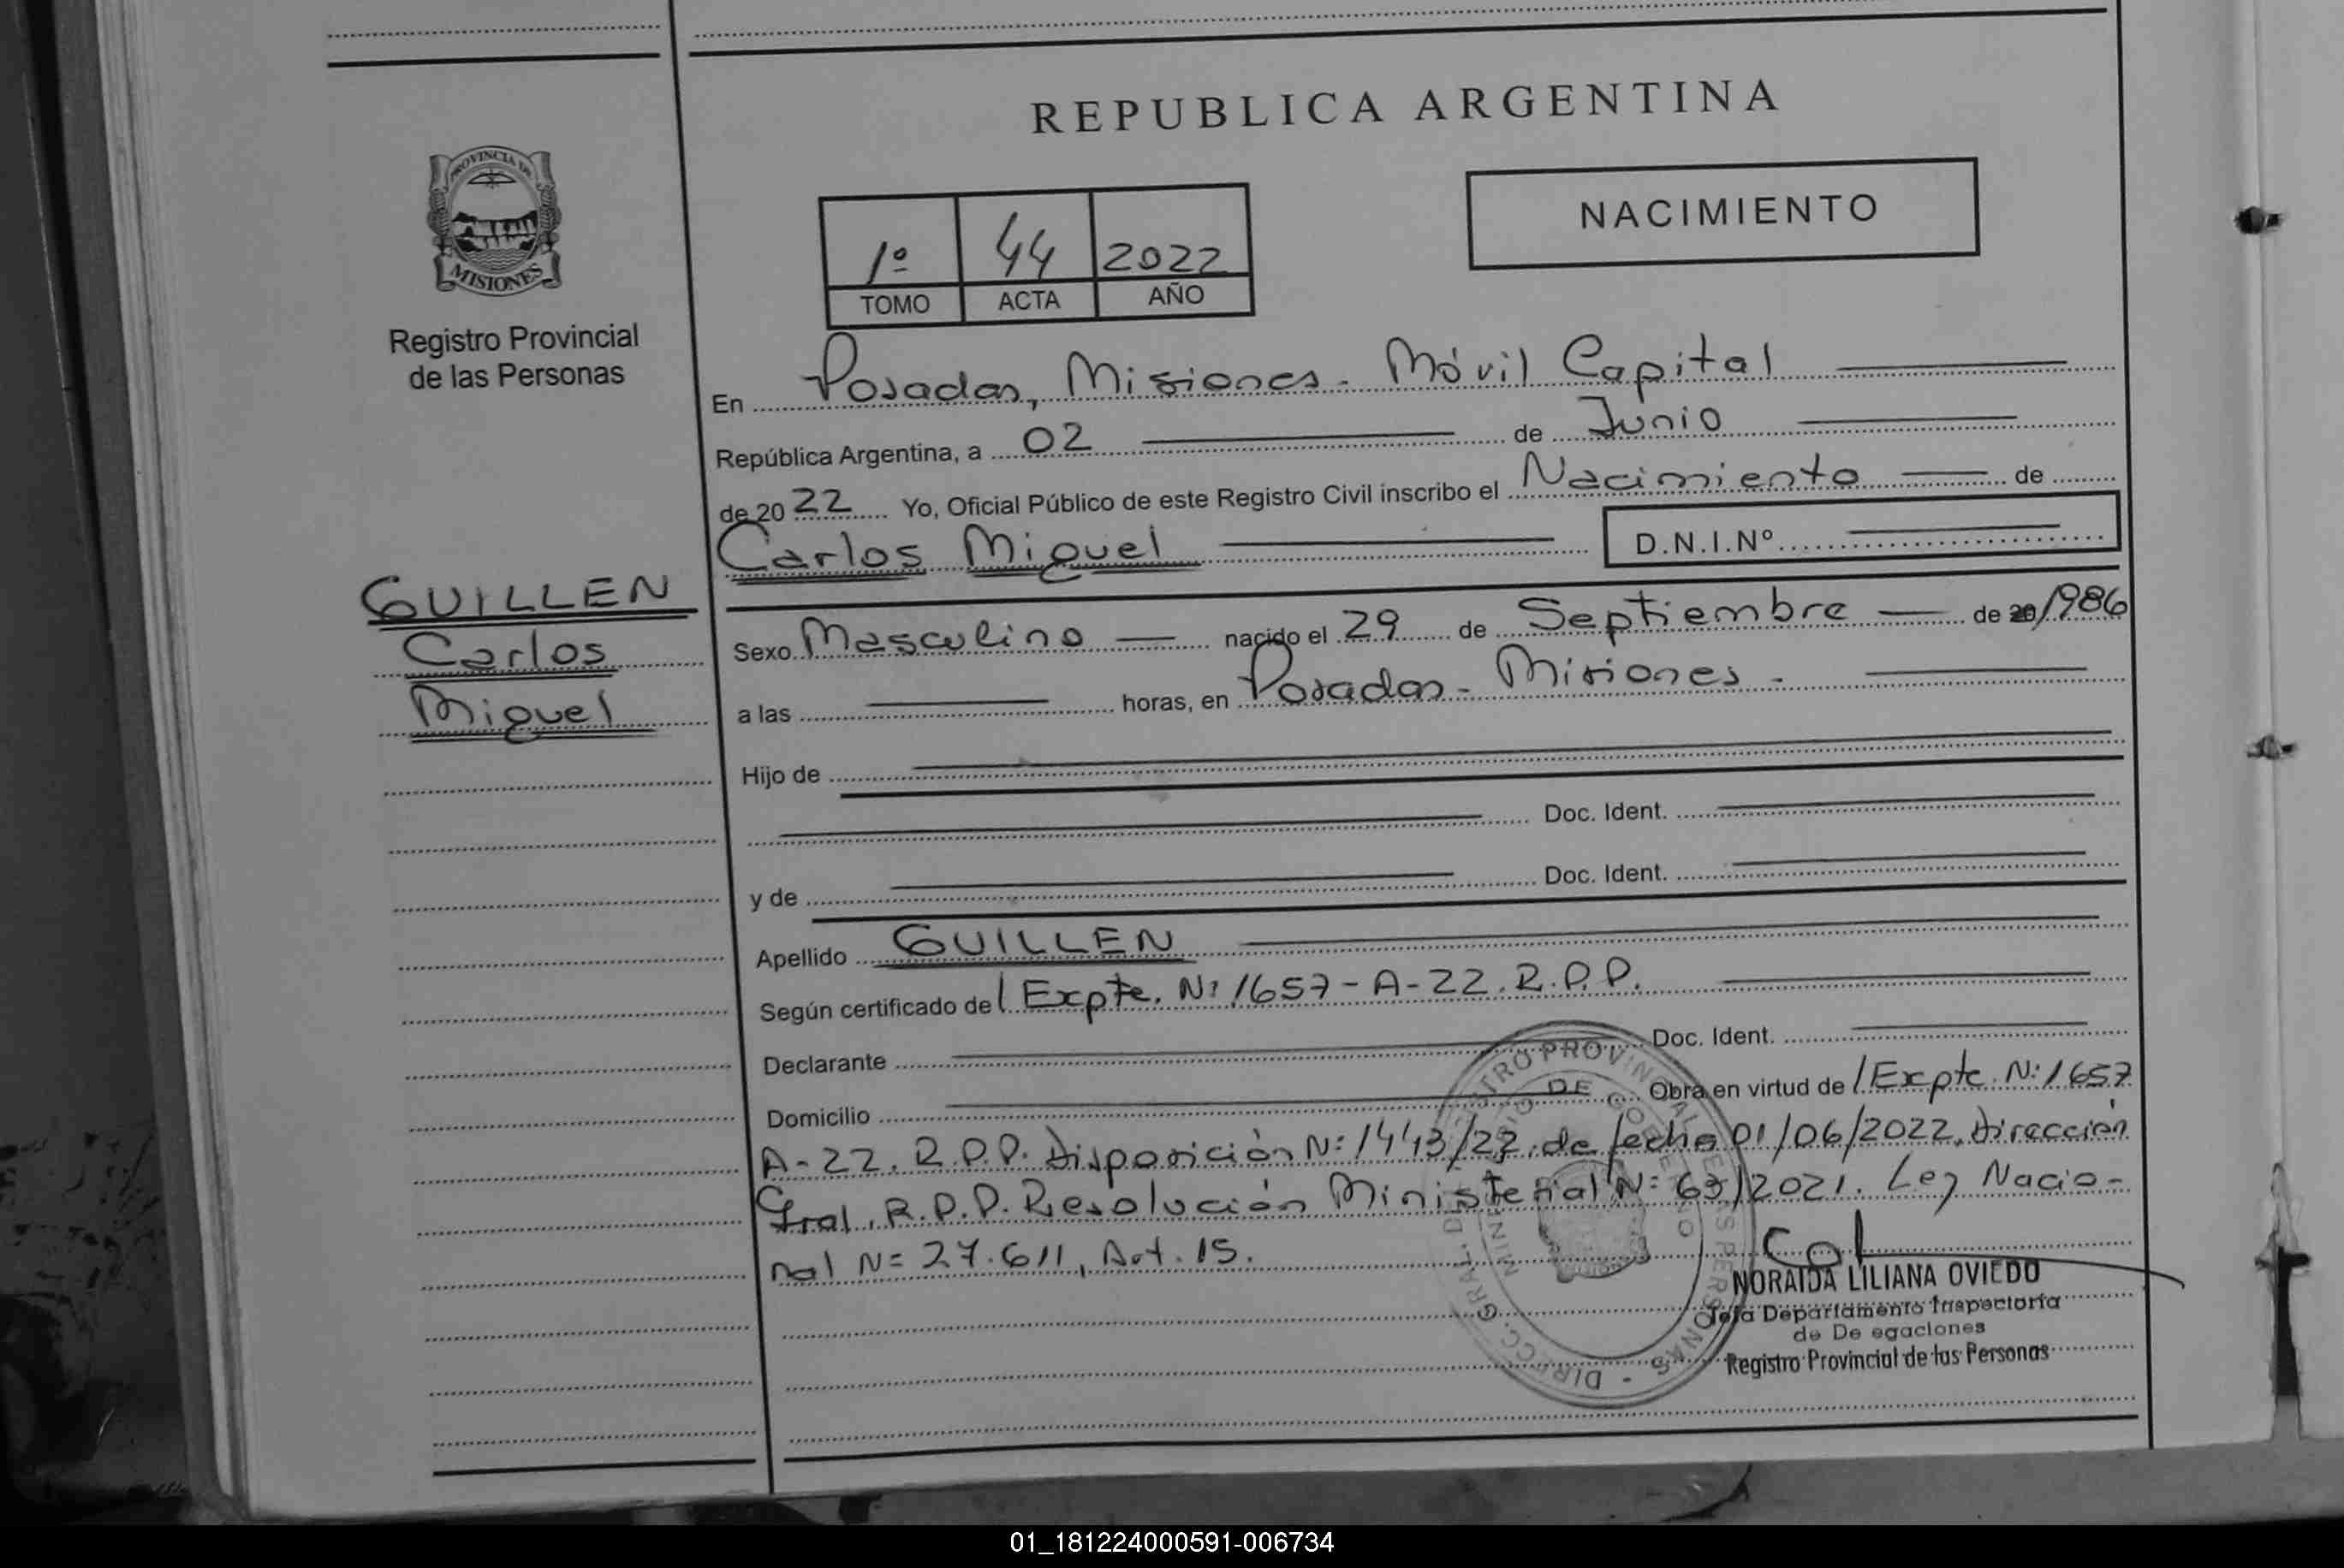 REPUBLICA ARGENTINA
PROVINCIA DE
MISIONES
Registro Provincial
de las Personas
NACIMIENTO
1º 44 2022
TOMO ACTA AÑO
En Posadas, Misiones - Móvil Capital
República Argentina, a 02 de Junio
de 20 22 Yo, Oficial Público de este Registro Civil inscribo el Nacimiento de
Carlos Miguel D.N.I.Nº
GUILLEN
Carlos
Miguel
Sexo Masculino nacido el 29 de Septiembre de 20/1986
a las horas, en Posadas - Misiones -
Hijo de
Doc. Ident.
y de Doc. Ident.
Apellido GUILLEN
Según certificado de / Expte. Nº 1657-A-22. R.P.P.
Declarante Doc. Ident.
Domicilio Obra en virtud de / Expte. Nº 1657
A-22. R.P.P. Disposición Nº 1443/22, de fecha 01/06/2022, Dirección
Gral. R.P.P. Resolución Ministerial Nº 63/2021. Ley Nacio-
nal Nº 27.611, Art. 15.
NORAIDA LILIANA OVIEDO
Jefa Departamento Inspectoría
de De egaciones
Registro Provincial de las Personas
01_181224000591-006734